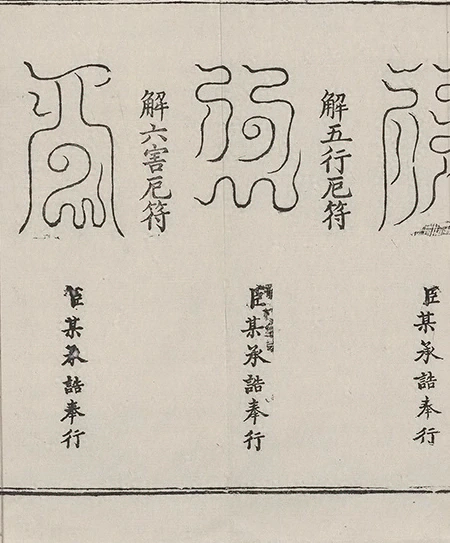 臣某承誥奉行
解五行厄符
臣某承誥奉行
解六害厄符
臣某承誥奉行